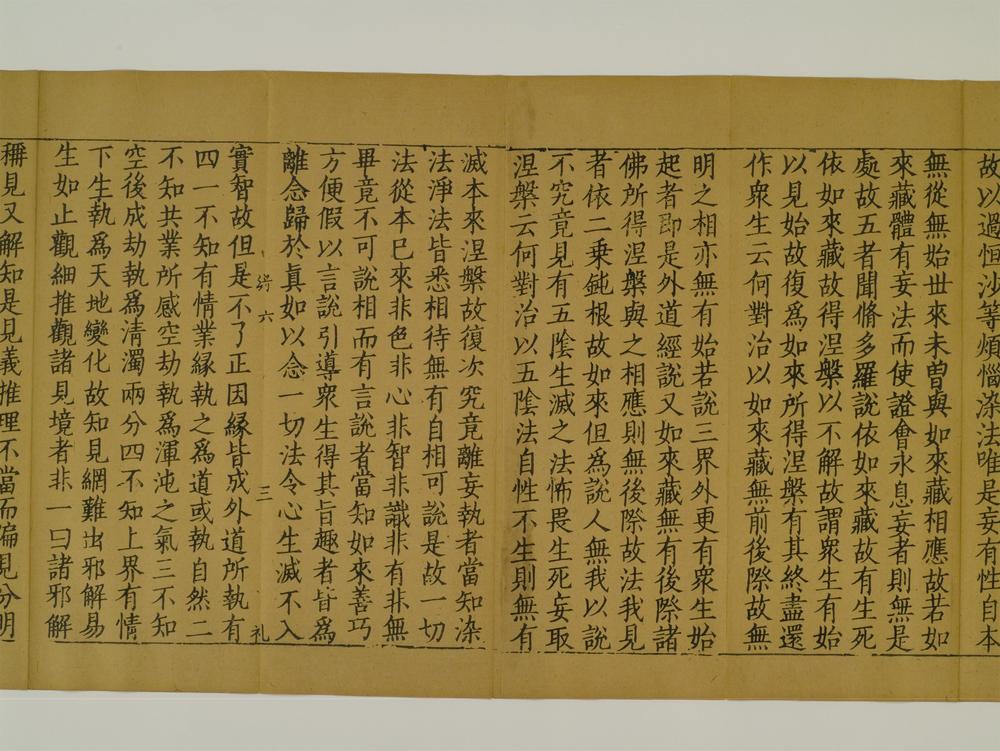 故以過恒沙等煩惱染法唯是妄有性自本
無從無始世來未曾與如來藏相應故若如
來藏體有妄法而使證會永息妄者則無是
處故五者聞脩多羅說依如來藏故有生死
依如來藏故得涅槃以不解故謂衆生有始
以見始故復爲如來所得涅槃有其終盡還
作衆生云何對治以如來藏無前後際故無
明之相亦無有始若說三界外更有衆生始
起者即是外道經說又如來藏無有後際諸
佛所得涅槃與之相應則無後際故法我見
者依二乘鈍根故如來但爲說人無我以說
不究竟見有五陰生滅之法怖畏生死妄取
涅槃云何對治以五陰法自性不生則無有
滅本來涅槃故復次究竟離妄執者當知染
法淨法皆悉相待無有自相可說是故一切
法從本已來非色非心非智非識非有非無
畢竟不可說相而有言說者當知如來善巧
方便假以言說引導衆生得其旨趣者皆爲
離念歸於真如以念一切法令心生滅不入
六 三 礼
實智故但是不了正因緣皆成外道所執有
四一不知有情業緣執之爲道或執自然二
不知共業所感空劫執爲渾沌之氣三不知
空後成劫執爲清濁兩分四不知上界有情
下生執爲天地變化故知見網難出邪解易
生如止觀細推觀諸見境者非一曰諸邪解
稱見又解知是見義推理不當而偏見分明